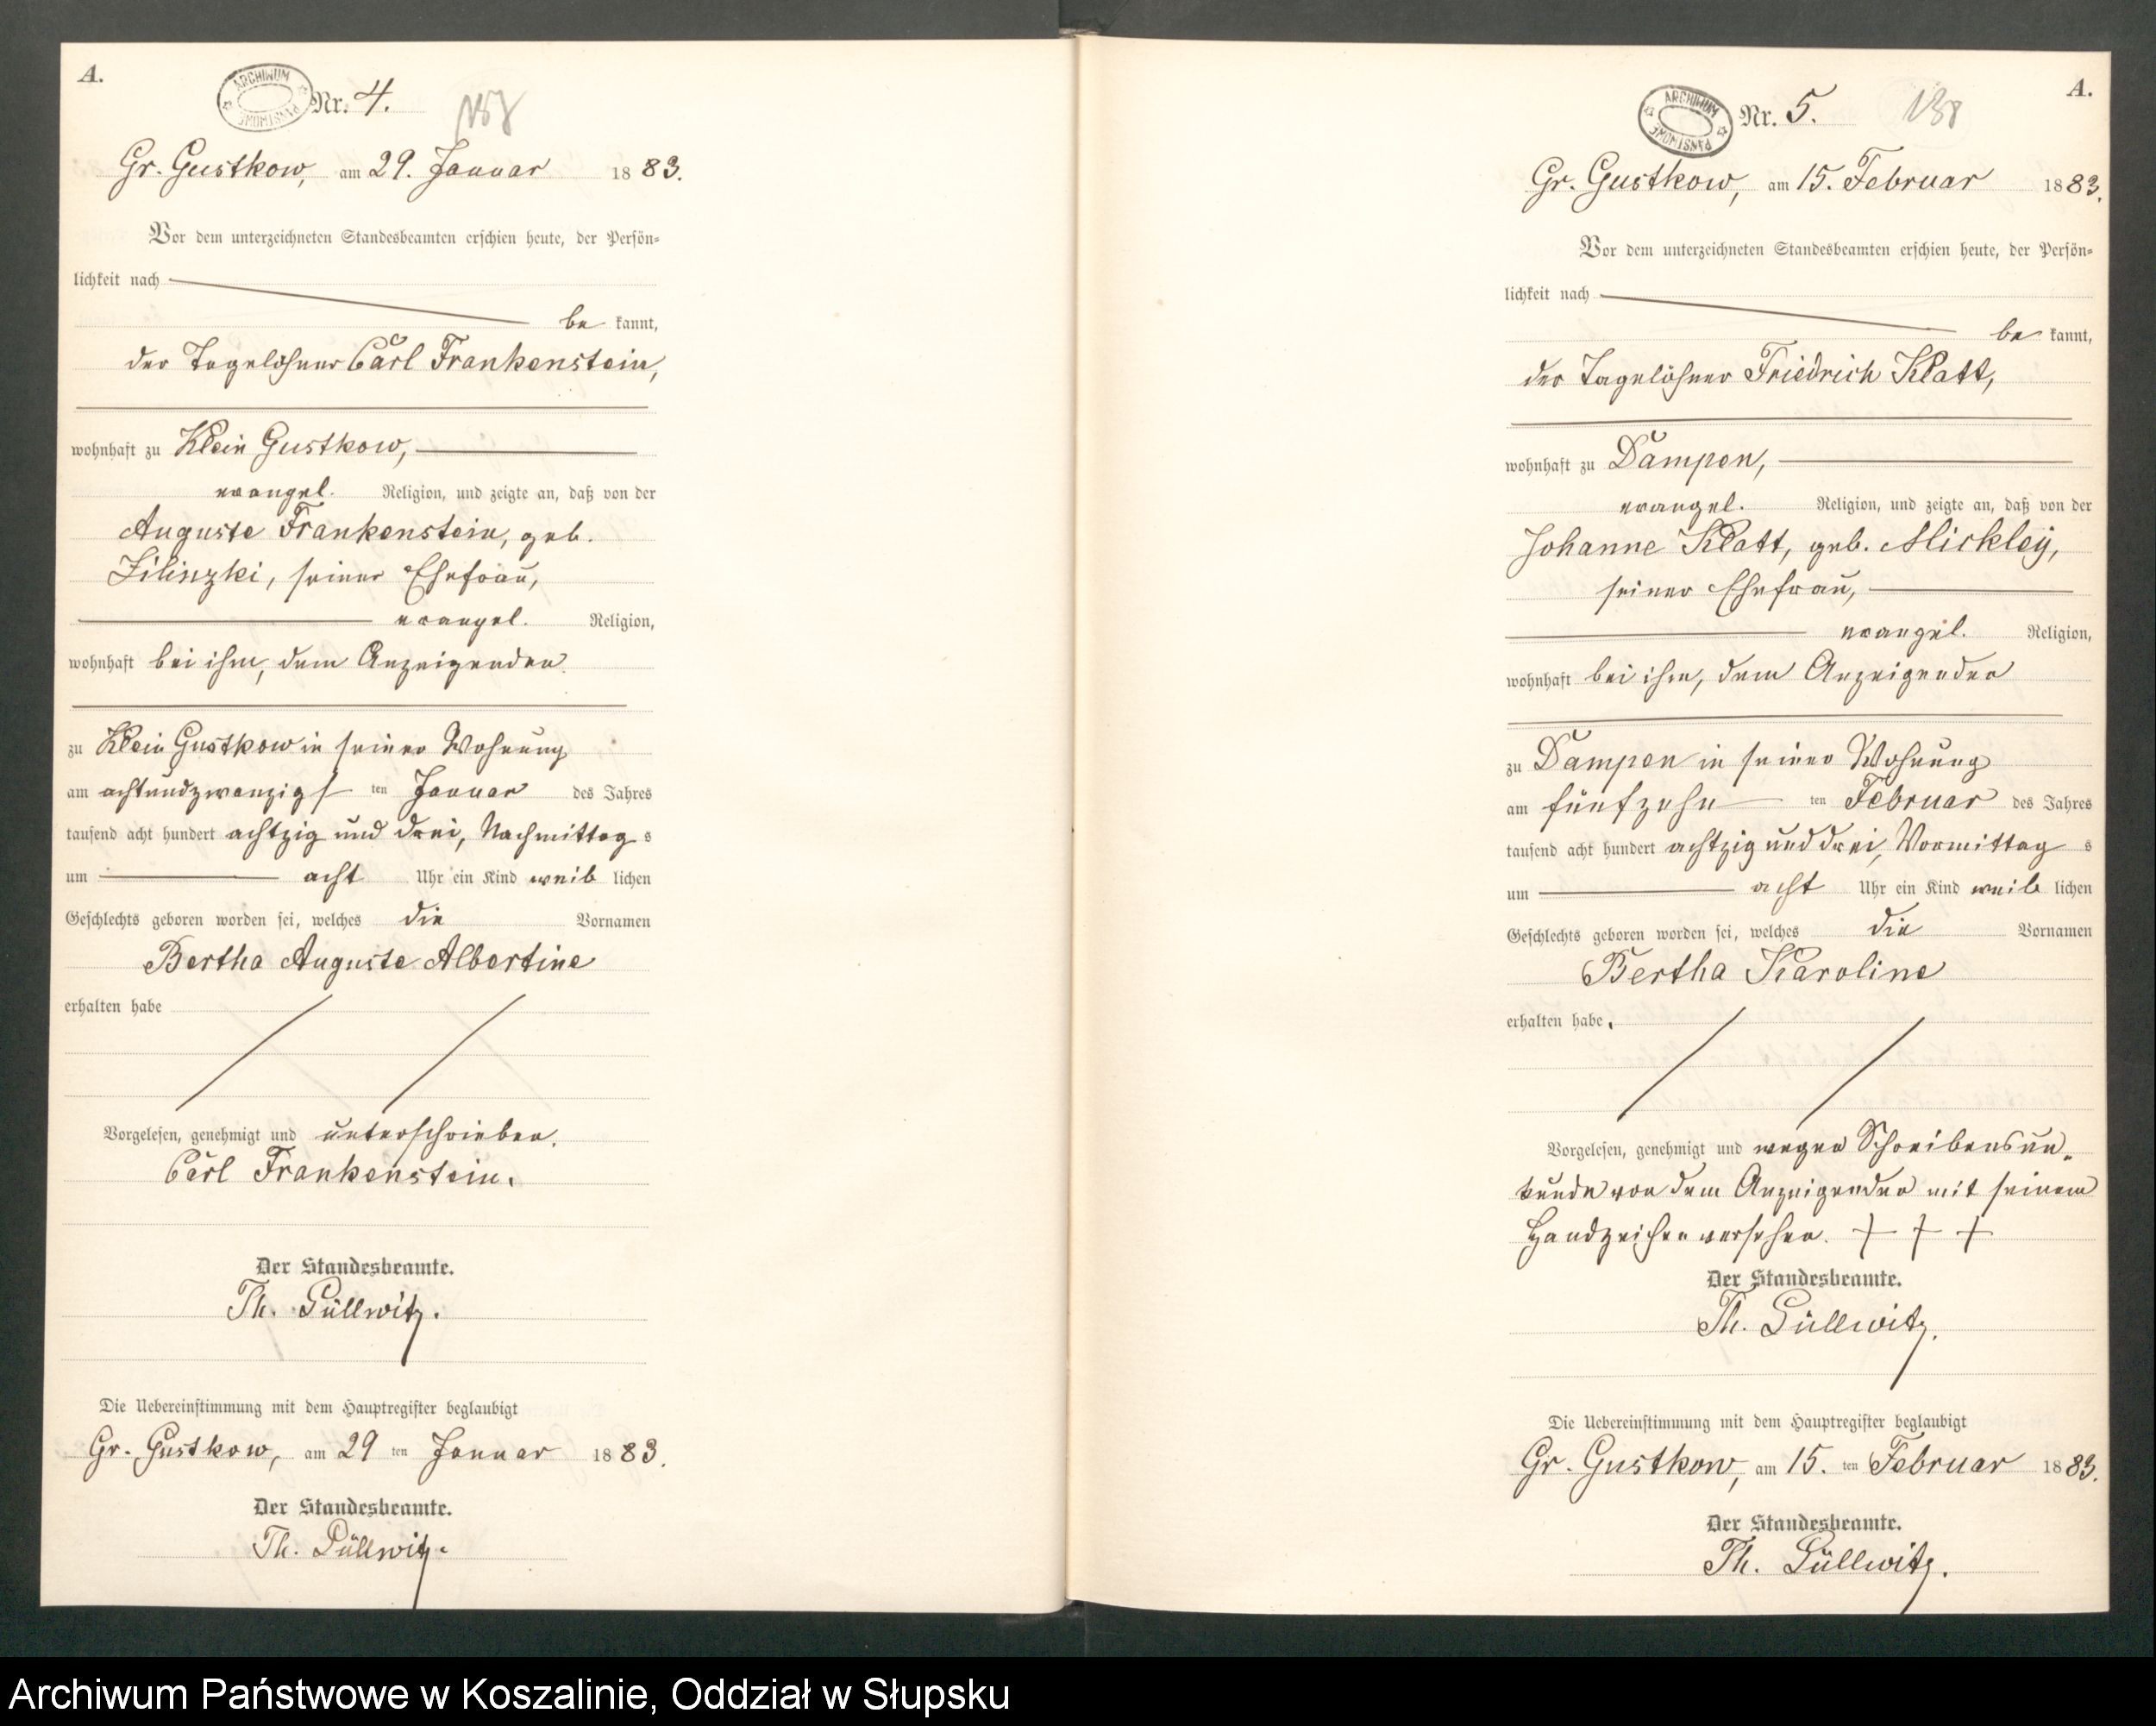 A.
ARCHIWUM PAŃSTWOWE
Nr. 4.
Gr. Gustkow, am 29. Januar 1883.
Vor dem unterzeichneten Standesbeamten erschien heute, der Persön-
lichkeit nach
be kannt,
der Tagelöhner Carl Frankenstein,
wohnhaft zu Klein Gustkow,
evangel. Religion, und zeigte an, daß von der
Auguste Frankenstein, geb.
Zilinzki, seiner Ehefrau,
evangel. Religion,
wohnhaft bei ihm, dem Anzeigenden
zu Klein Gustkow in seiner Wohnung
am achtundzwanzigsten Januar des Jahres
tausend acht hundert achtzig und drei, Nachmittags
um acht Uhr ein Kind weiblichen
Geschlechts geboren worden sei, welches die Vornamen
Bertha Auguste Albertine
erhalten habe
Vorgelesen, genehmigt und unterschrieben.
Carl Frankenstein.
Der Standesbeamte.
Th. Püllwitz.
Die Uebereinstimmung mit dem Hauptregister beglaubigt
Gr. Gustkow, am 29 ten Januar 1883.
Der Standesbeamte.
Th. Püllwitz.
A.
ARCHIWUM PAŃSTWOWE
Nr. 5. 138
Gr. Gustkow, am 15. Februar 1883.
Vor dem unterzeichneten Standesbeamten erschien heute, der Persön-
lichkeit nach
be kannt,
der Tagelöhner Friedrich Klatt,
wohnhaft zu Dampen,
evangel. Religion, und zeigte an, daß von der
Johanne Klatt, geb. Mickley,
seiner Ehefrau,
evangel. Religion,
wohnhaft bei ihm, dem Anzeigenden
zu Dampen in seiner Wohnung
am fünfzehn ten Februar des Jahres
tausend acht hundert achtzig und drei, Vormittags
um acht Uhr ein Kind weiblichen
Geschlechts geboren worden sei, welches die Vornamen
Bertha Karoline
erhalten habe.
Vorgelesen, genehmigt und wegen Schreibensun-
kunde von dem Anzeigenden mit seinem
Handzeichen versehen. + + +
Der Standesbeamte.
Th. Püllwitz.
Die Uebereinstimmung mit dem Hauptregister beglaubigt
Gr. Gustkow, am 15. ten Februar 1883.
Der Standesbeamte.
Th. Püllwitz.
Archiwum Państwowe w Koszalinie, Oddział w Słupsku